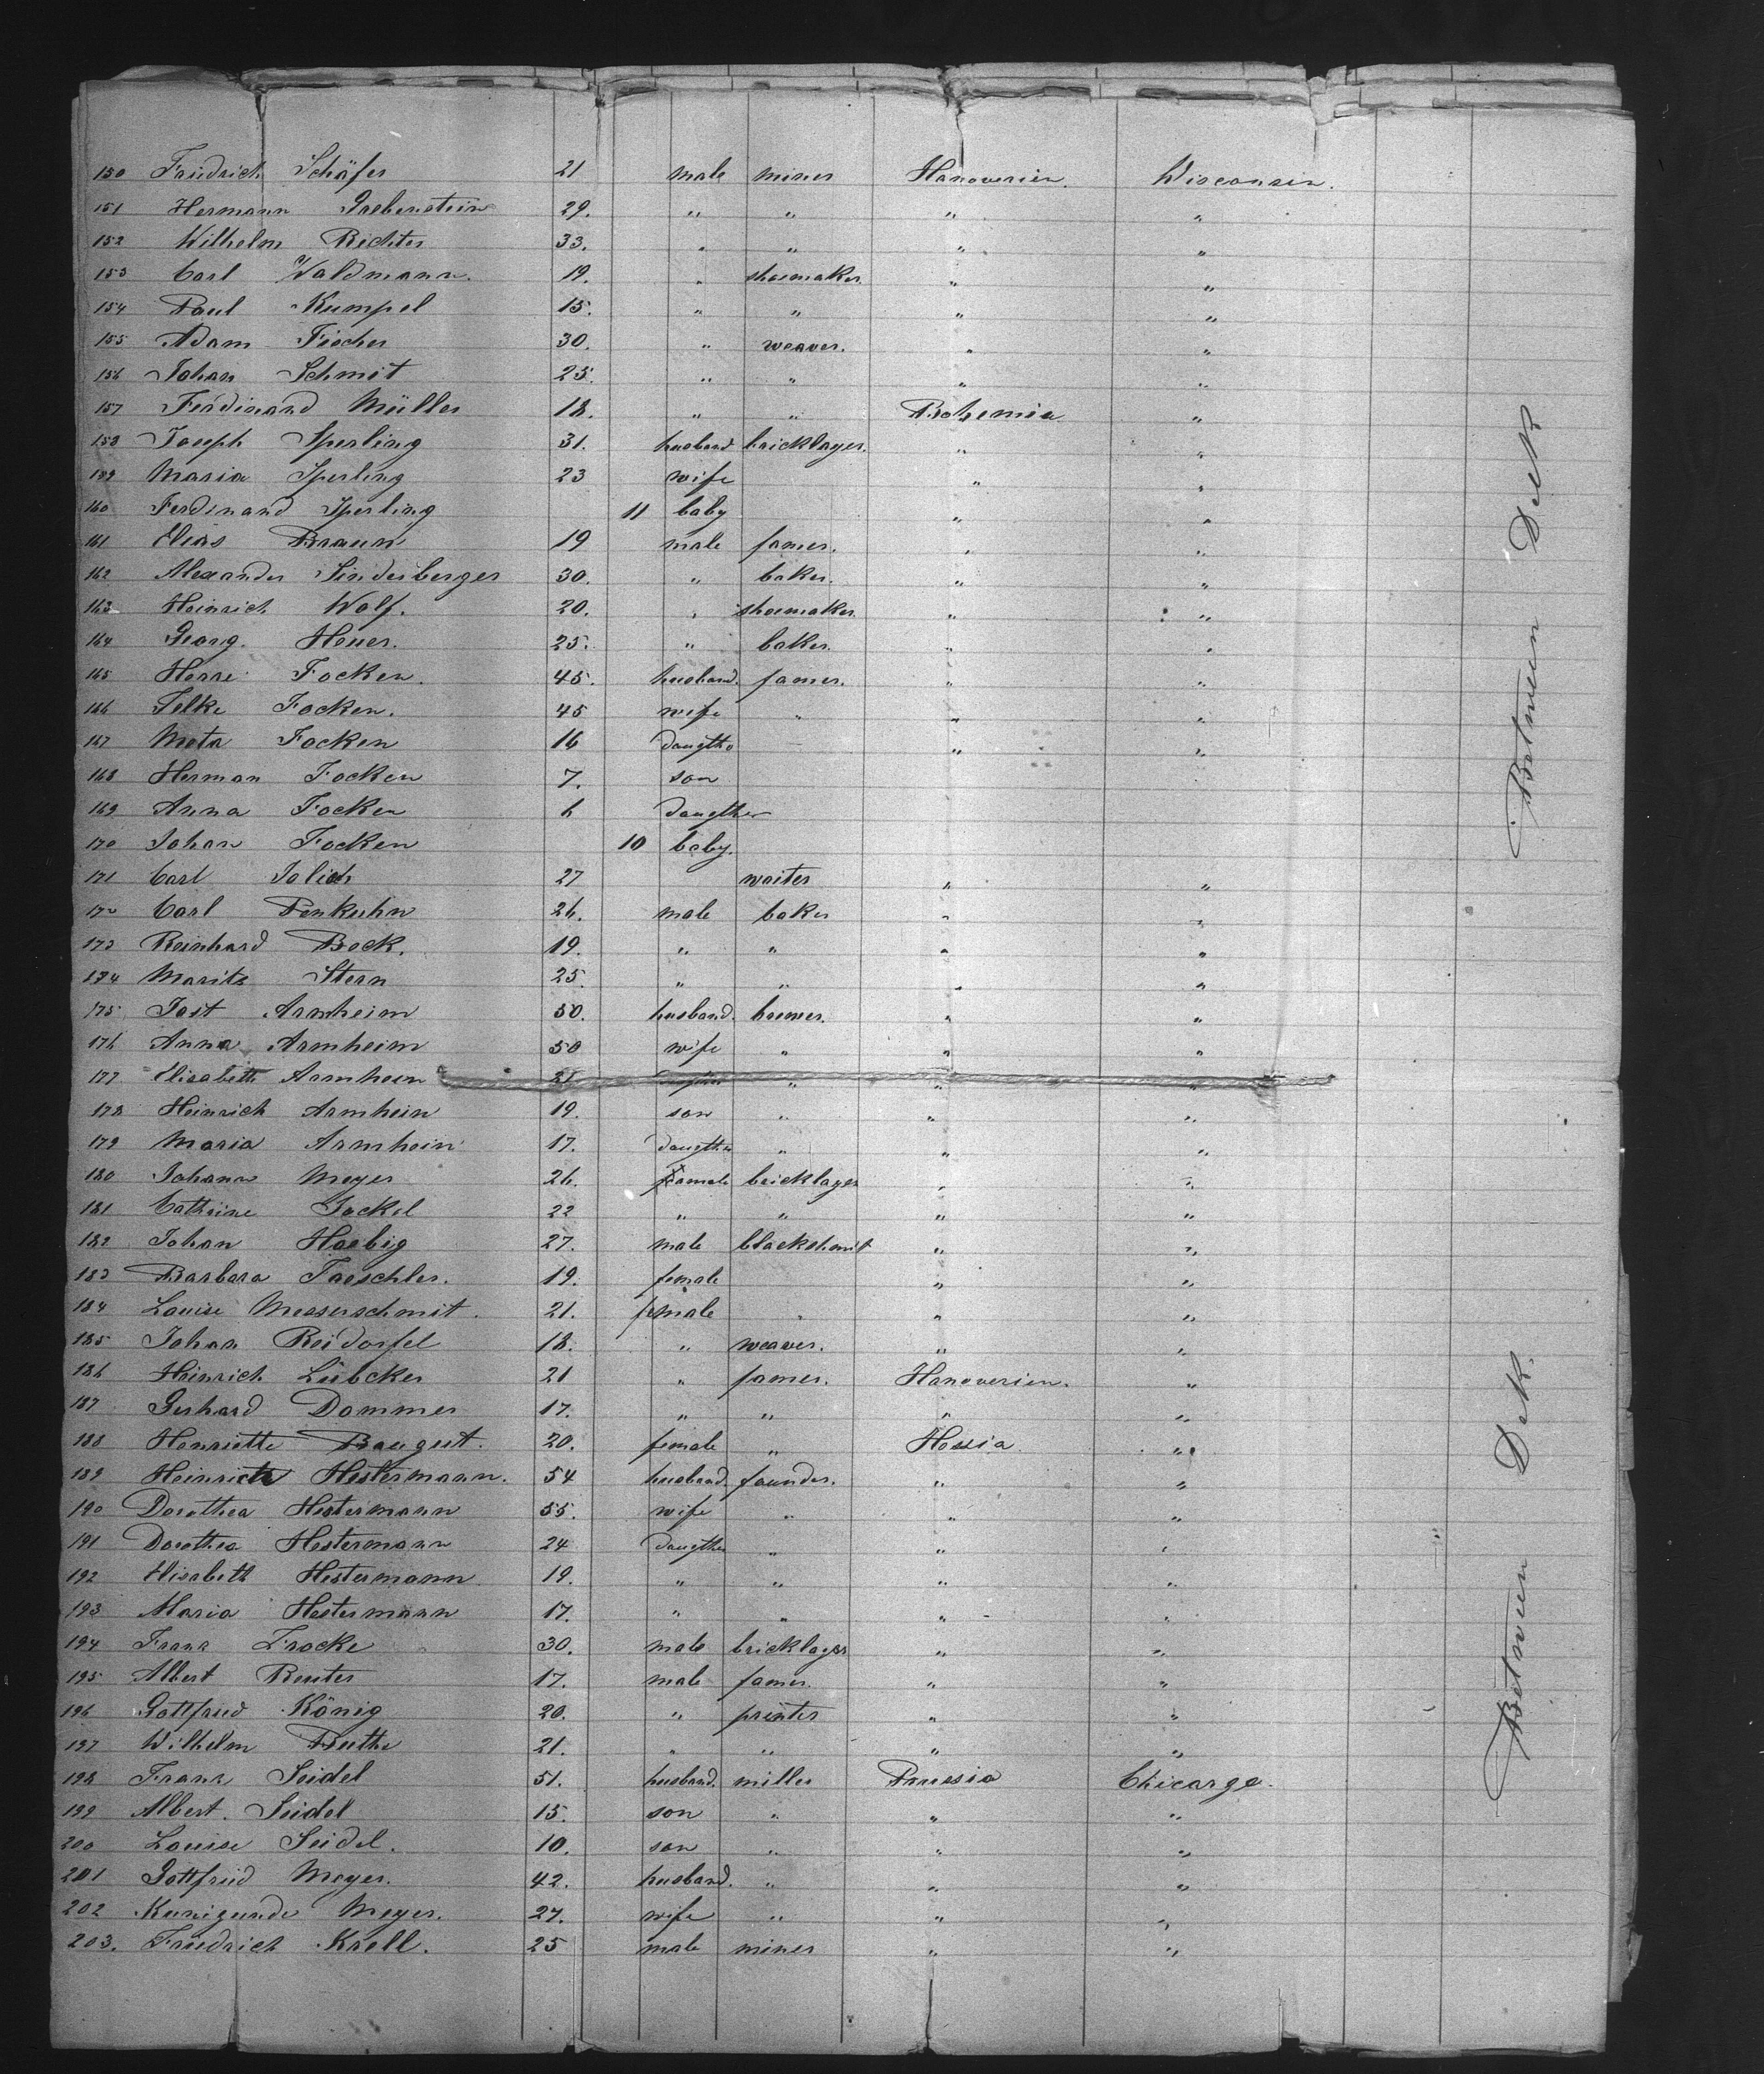 150 Friedrich Schäfer 21 male miner Hanoverien. Wisconsin.
151 Hermann Grebenstein 29. " " " "
152 Wilhelm Richter 33. " " " "
153 Carl Waldmann. 19. " shoemaker " "
154 Paul Kumpel 15. " " " "
155 Adam Fischer 30. " weaver. " "
156 Johan Schmit 25. " " " "
157 Ferdinand Müller 18. " " Bohemia "
158 Joseph Sperling 31. husband bricklayer. " "
159 Maria Sperling 23 wife " "
160 Ferdinand Sperling 11 baby " "
161 Elias Braun 19 male famer. " "
162 Alexander Sinderberger 30. " baker. " "
163 Heinrich Wolf. 20. " shoemaker. " "
164 Georg. Heuer. 25. " baker. " "
165 Focken. 45. husband. famer. " "
166 Focken. 45 wife " " "
167 Meta Focken 16 daugthe " "
168 Herman Focken 7. son
169 Anna Focken 6 daugther
170 Johan Focken 10 baby.
171 Carl 27 waiter " "
172 Carl Penkuhn 26. male baker " "
173 Reinhard Bock. 19. " " " "
174 Moritz Stern 25. " " " "
175 Jost Armheim 50. husband. brewer. " "
176 Anna Armheim 50 wife " " "
177 Elisabeth Armheim 21 " " "
178 Heinrich Armhein 19. son " " "
179 Maria Armhein 17. daugther " " "
180 Johann Meyer 26. famale bricklayer " "
181 Cathrine Jockel 22 " " " "
182 Johan Haebig 27. male blackshmit " "
183 Barbara Taeschler. 19. female " "
184 Louise Messerschmit. 21. female " " "
185 Johan Reidorfel 18. " weaver. " "
186 Heinrich Lübcker 21 " famer. Hanoverien. "
187 Gerhard Dommer 17. " " " "
188 Henriette Baugut. 20. female " Hessia "
189 Heinrich Hestermann. 54 husband. founder. " "
190 Dorothea Hestermann 55. wife " " "
191 Dorothea Hestermann 24 daugther " " "
192 Elisabeth Hestermann 19. " " " "
193 Maria Hestermann 17. " " " "
194 Franz Zrocke 30. male bricklayer " "
195 Albert Reuter 17. male famer. " "
196 Gottfried König 20. " printer " "
197 Wilhelm Buthe 21. " " " "
198 Franz Seidel 51. husband. miller Prussia Chicargo.
199 Albert. Seidel 15. son " " "
200 Louise Seidel. 10. son " " "
201 Gottfried Meyer. 42. husband. " " "
202 Kunigunde Meyer. 27. wife " " "
203. Friedrich Krell. 25 male miner " "
Betwein Dek
Betwein Dek.